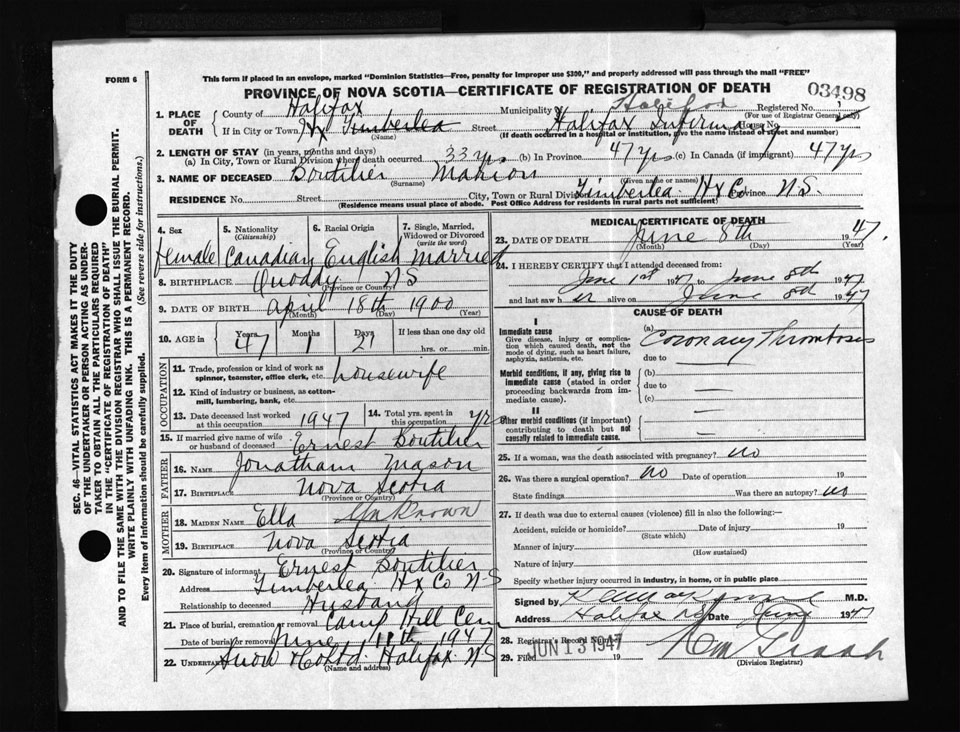 FORM 6
This form if placed in an envelope, marked "Dominion Statistics—Free, penalty for improper use $300," and properly addressed will pass through the mail "FREE"
PROVINCE OF NOVA SCOTIA—CERTIFICATE OF REGISTRATION OF DEATH
03498
1. PLACE OF DEATH
County of Halifax Municipality Halifax Registered No.
(For use of Registrar General only)
If in City or Town Timberlea Street Halifax Infirmary House No.
(Name) (If death occurred in a hospital or institution, give the name instead of street and number)
2. LENGTH OF STAY (in years, months and days)
(a) In City, Town or Rural Division where death occurred 33 yrs (b) In Province 47 yrs (c) In Canada (if immigrant) 47 yrs
3. NAME OF DECEASED Boutilier Marion
(Surname) (Given name or names)
RESIDENCE No. Street City, Town or Rural Division Timberlea Hx Co Province N.S.
(Residence means usual place of abode. Post Office Address for residents in rural parts not sufficient)
4. Sex female
5. Nationality (Citizenship) Canadian
6. Racial Origin English
7. Single, Married, Widowed or Divorced (write the word) Married
8. BIRTHPLACE Quoddy NS
(Province or Country)
9. DATE OF BIRTH April 18th 1900
(Month) (Day) (Year)
10. AGE in Years 47 Months 1 Days 21 If less than one day old
hrs. or min.
OCCUPATION
11. Trade, profession or kind of work as spinner, teamster, office clerk, etc. housewife
12. Kind of industry or business, as cotton-mill, lumbering, bank, etc.
13. Date deceased last worked at this occupation 1947
14. Total yrs. spent in this occupation yrs
15. If married give name of wife or husband of deceased Ernest Boutilier
FATHER
16. NAME Jonathan Mason
17. BIRTHPLACE Nova Scotia
(Province or Country)
MOTHER
18. MAIDEN NAME Ella Unknown
19. BIRTHPLACE Nova Scotia
(Province or Country)
20. Signature of informant Ernest Boutilier
Address Timberlea Hx Co N-S
Relationship to deceased Husband
21. Place of burial, cremation or removal Camp Hill Cem
Date of burial or removal June 11th 1947
22. UNDERTAKER Snow & Co Ltd. Halifax N.S
(Name and address)
MEDICAL CERTIFICATE OF DEATH
23. DATE OF DEATH June 8th 1947.
(Month) (Day) (Year)
24. I HEREBY CERTIFY that I attended deceased from:
June 1st 1947 to June 8th 1947
and last saw her alive on June 8th 1947
CAUSE OF DEATH
I
Immediate cause
Give disease, injury or complication which caused death, not the mode of dying, such as heart failure, asphyxia, asthenia, etc.
(a) Coronary Thrombosis
due to
Morbid conditions, if any, giving rise to immediate cause (stated in order proceeding backwards from immediate cause).
(b)
due to
(c)
II
Other morbid conditions (if important) contributing to death but not causally related to immediate cause.
25. If a woman, was the death associated with pregnancy? no
26. Was there a surgical operation? no Date of operation 19
State findings Was there an autopsy? no
27. If death was due to external causes (violence) fill in also the following:—
Accident, suicide or homicide? Date of injury 19
(State which)
Manner of injury
(How sustained)
Nature of injury
Specify whether injury occurred in industry, in home, or in public place
Signed by M.D.
Address Halifax NS Date June 1947
28. Registrar's Record Number
29. Filed JUN 13 1947 19
(Division Registrar)
SEC. 46—VITAL STATISTICS ACT MAKES IT THE DUTY
OF THE UNDERTAKER OR PERSON ACTING AS UNDER-
TAKER TO OBTAIN ALL THE PARTICULARS REQUIRED
IN THE "CERTIFICATE OF REGISTRATION OF DEATH"
AND TO FILE THE SAME WITH THE DIVISION REGISTRAR WHO SHALL ISSUE THE BURIAL PERMIT.
WRITE PLAINLY WITH UNFADING INK. THIS IS A PERMANENT RECORD.
Every item of information should be carefully supplied. (See reverse side for instructions.)